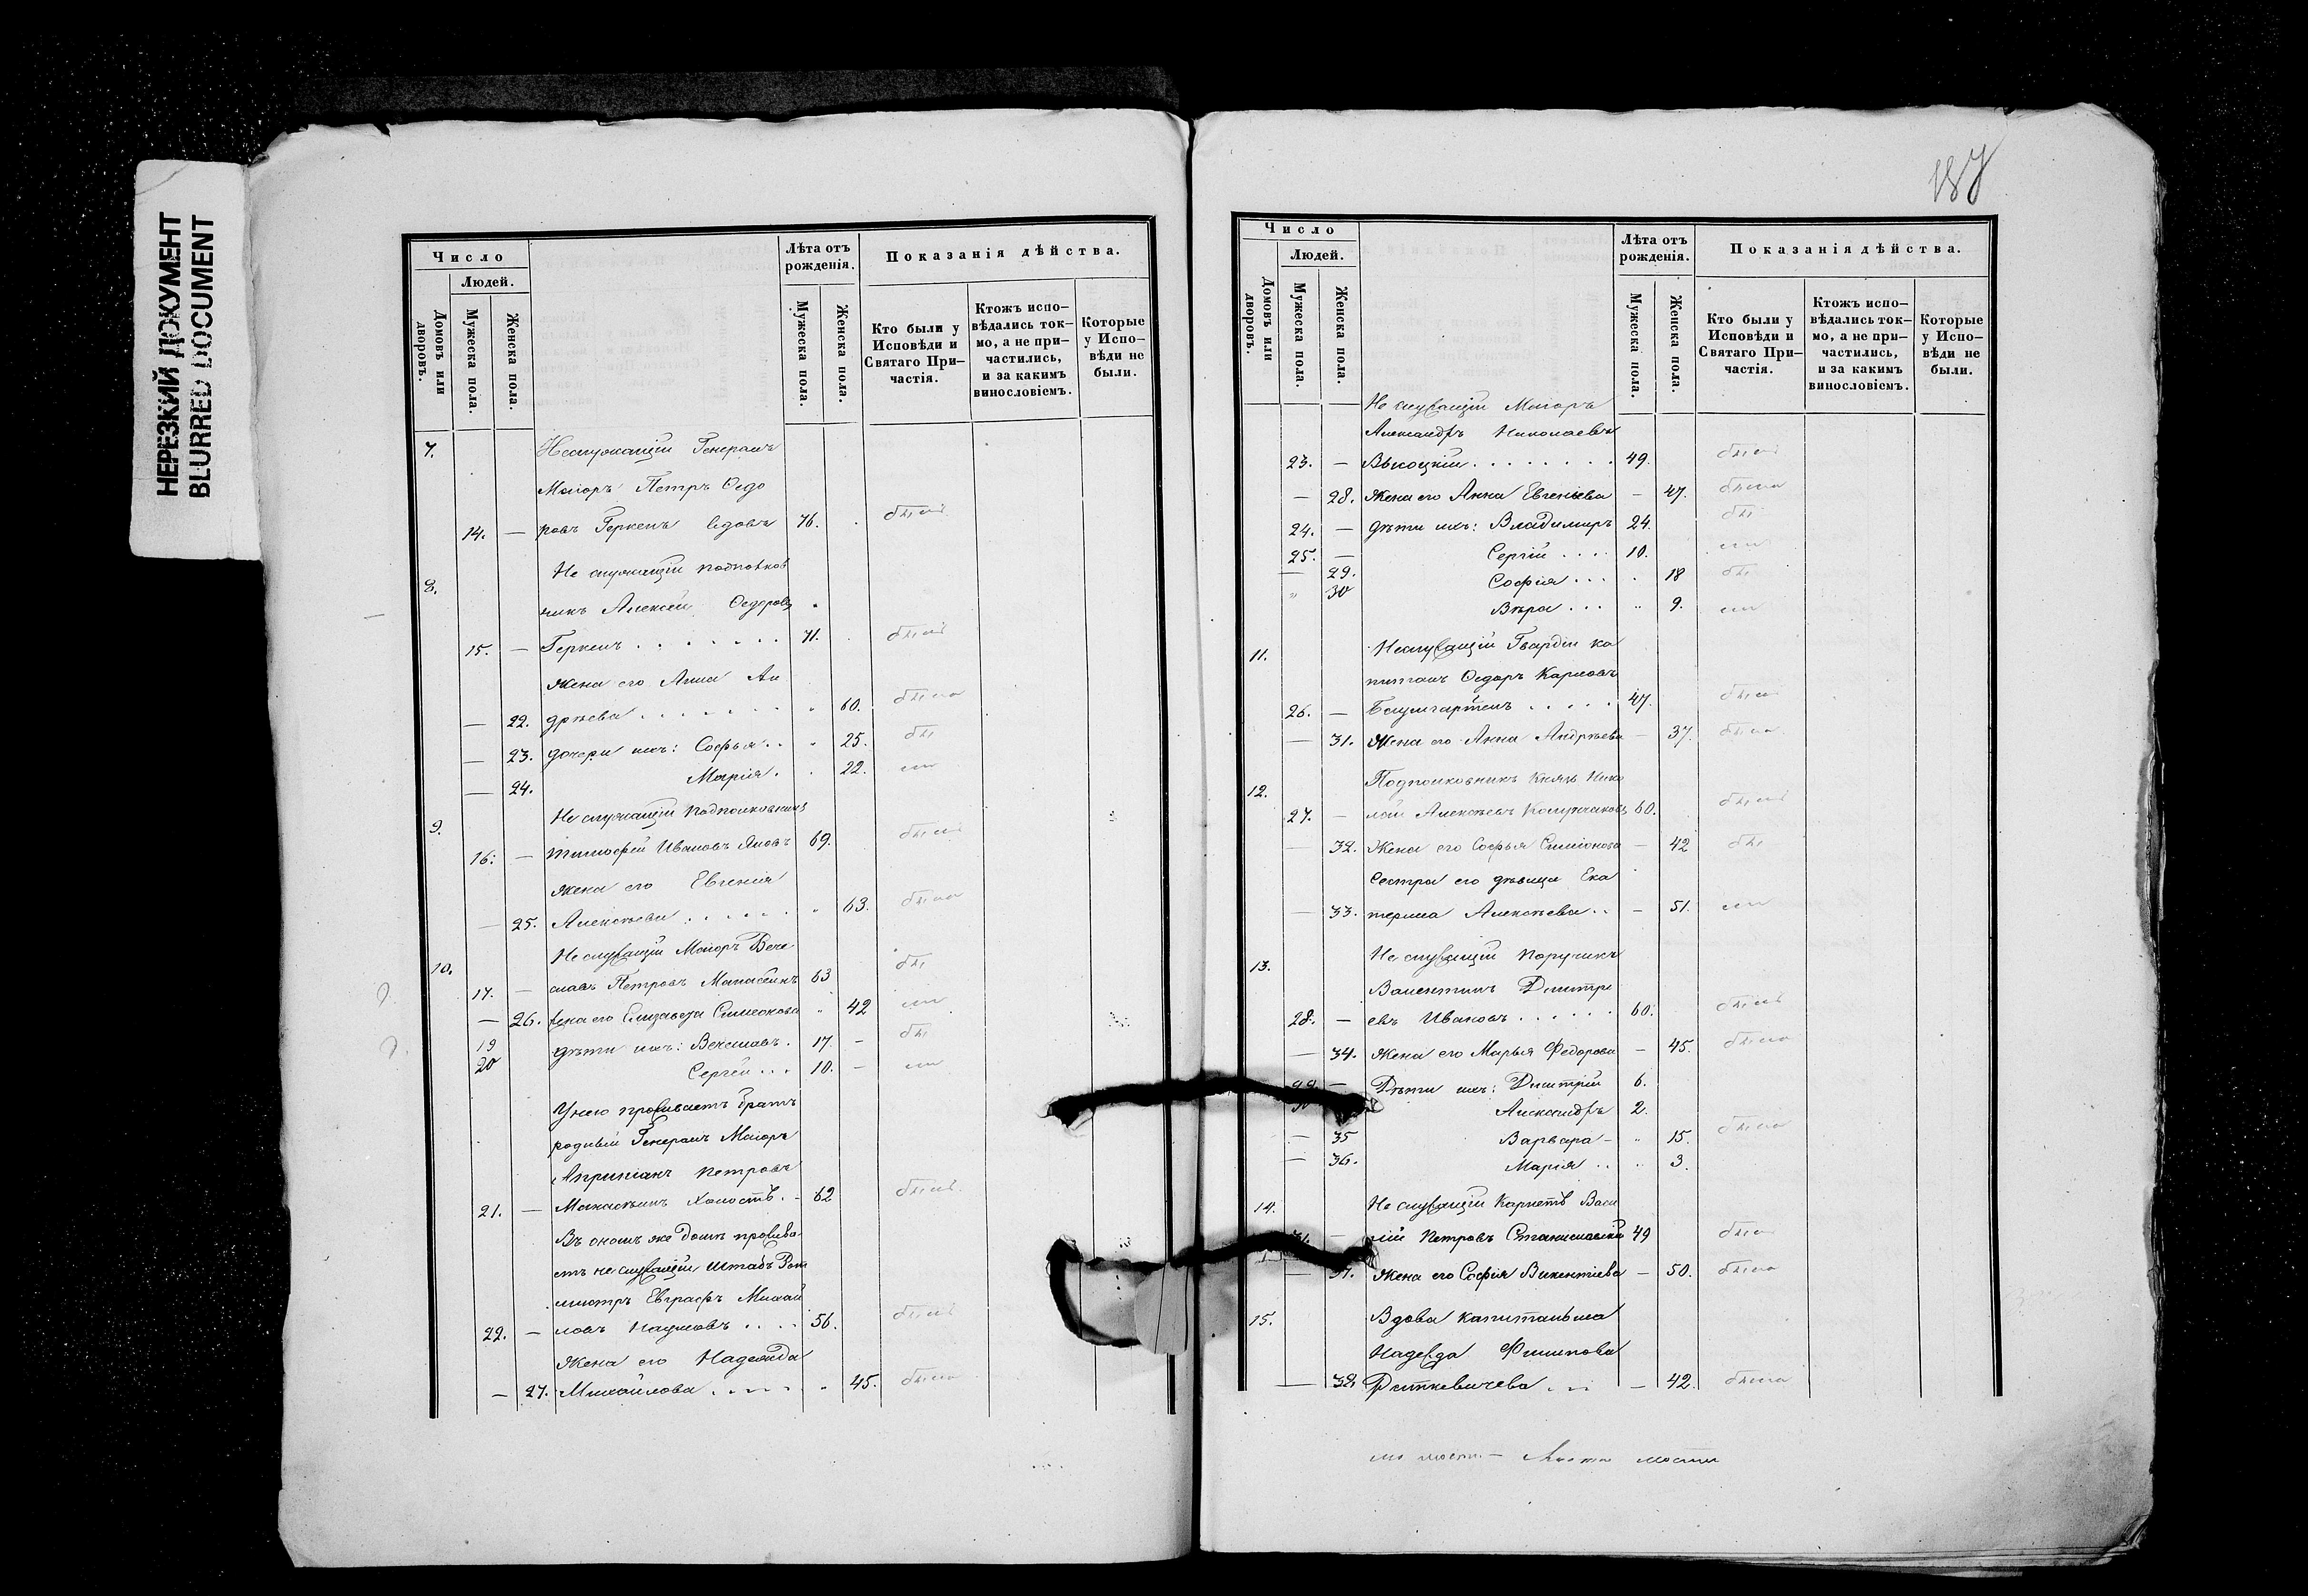 НЕРЕЗКИЙ ДОКУМЕНТ
BLURRED DOCUMENT
Число
Людей.
Домовъ или дворовъ.
Мужеска пола.
Женска пола.
Лѣта отъ рожденія.
Мужеска пола.
Женска пола.
Показанія дѣйства.
Кто были у Исповѣди и Святаго При-частія.
Ктожъ испо-вѣдались ток-мо, а не при-частились, и за какимъ винословіемъ.
Которые у Испо-вѣди не были.
7. Неслужащій Генералъ
Маіоръ Петръ Ѳедо
14. — ровъ Геркенъ вдовъ 76. былъ
8. Не служащій подполков
никъ Алексѣй Ѳедоровъ
15. — Геркенъ 71. былъ
жена его Анна Ан
— 22. дрѣева 60. была
— 23. дочери ихъ: Софья 25. бы
— 24. Марія 22. ли
9. Не служащій Подполковникъ
16. — Тимофей Ивановъ Яновъ 69. былъ
жена его Евгенія
— 25. Алексѣева 63. была
10. Не служащій Маіоръ Вече
17. — славъ Петровъ Манасеинъ 63 бы
— 26. жена его Елизавета Симеонова 42 ли
19 дѣти ихъ: Вечеславъ. 17. — бы
20 Сергѣй 10. — ли
У него проживаетъ братъ
родный Генералъ Маіоръ
Петровъ
21. — Манасѣинъ холостъ. — 62 былъ
Въ ономъ же домѣ прожива-
етъ не служащій Штабъ Рот
мистръ Евграфъ Михай
22. — ловъ Наумовъ 56. былъ
Жена его Надежда
— 27. Михайлова 45. была
187
Число
Людей.
Домовъ или дворовъ.
Мужеска пола.
Женска пола.
Лѣта отъ рожденія.
Мужеска пола.
Женска пола.
Показанія дѣйства.
Кто были у Исповѣди и Святаго При-частія.
Ктожъ испо-вѣдались ток-мо, а не при-частились, и за какимъ винословіемъ.
Которые у Испо-вѣди не были.
Не служащій Маіоръ
Александръ Николаевъ
23. — Высоцкій 49. былъ
— 28. Жена его Анна Евгеніева — 47. была
24. — дѣти ихъ: Владимиръ 24. бы
25. — Сергій 10. ли
— 29. Софія 18 бы
" 30 Вѣра " 9. ли
11. Неслужащій Гвардіи ка
питанъ Ѳедоръ Карловъ
26. — Баумгартенъ 47. былъ
— 31. Жена его Анна Андрѣева — 37. была
12. Подполковникъ Князь Нико
27. — лай Алексѣевъ 60. былъ
— 32. Жена его Софья Симіонова — 42 бы
Сестра его дѣвица Ека
— 33. терина Алексѣева — 51. ли
13. Не служащій поручикъ
Валентинъ Дмитрі
28. — евъ Ивановъ 60. былъ
— 34. Жена его Марья Федорова — 45. была
29 — Дѣти ихъ: Дмитрій 6.
30 Александръ 2.
— 35 Варвара — " 15. была
— 36. Марія " 3.
14. Не служащій Карнетъ Васи
31. — лій Петровъ Станиславскій 49 былъ
— 37. Жена его Софія Викентіева — 50. была
15. Вдова капитаньша
Надежда Филипова
— 38 Риткевичева — 42. была